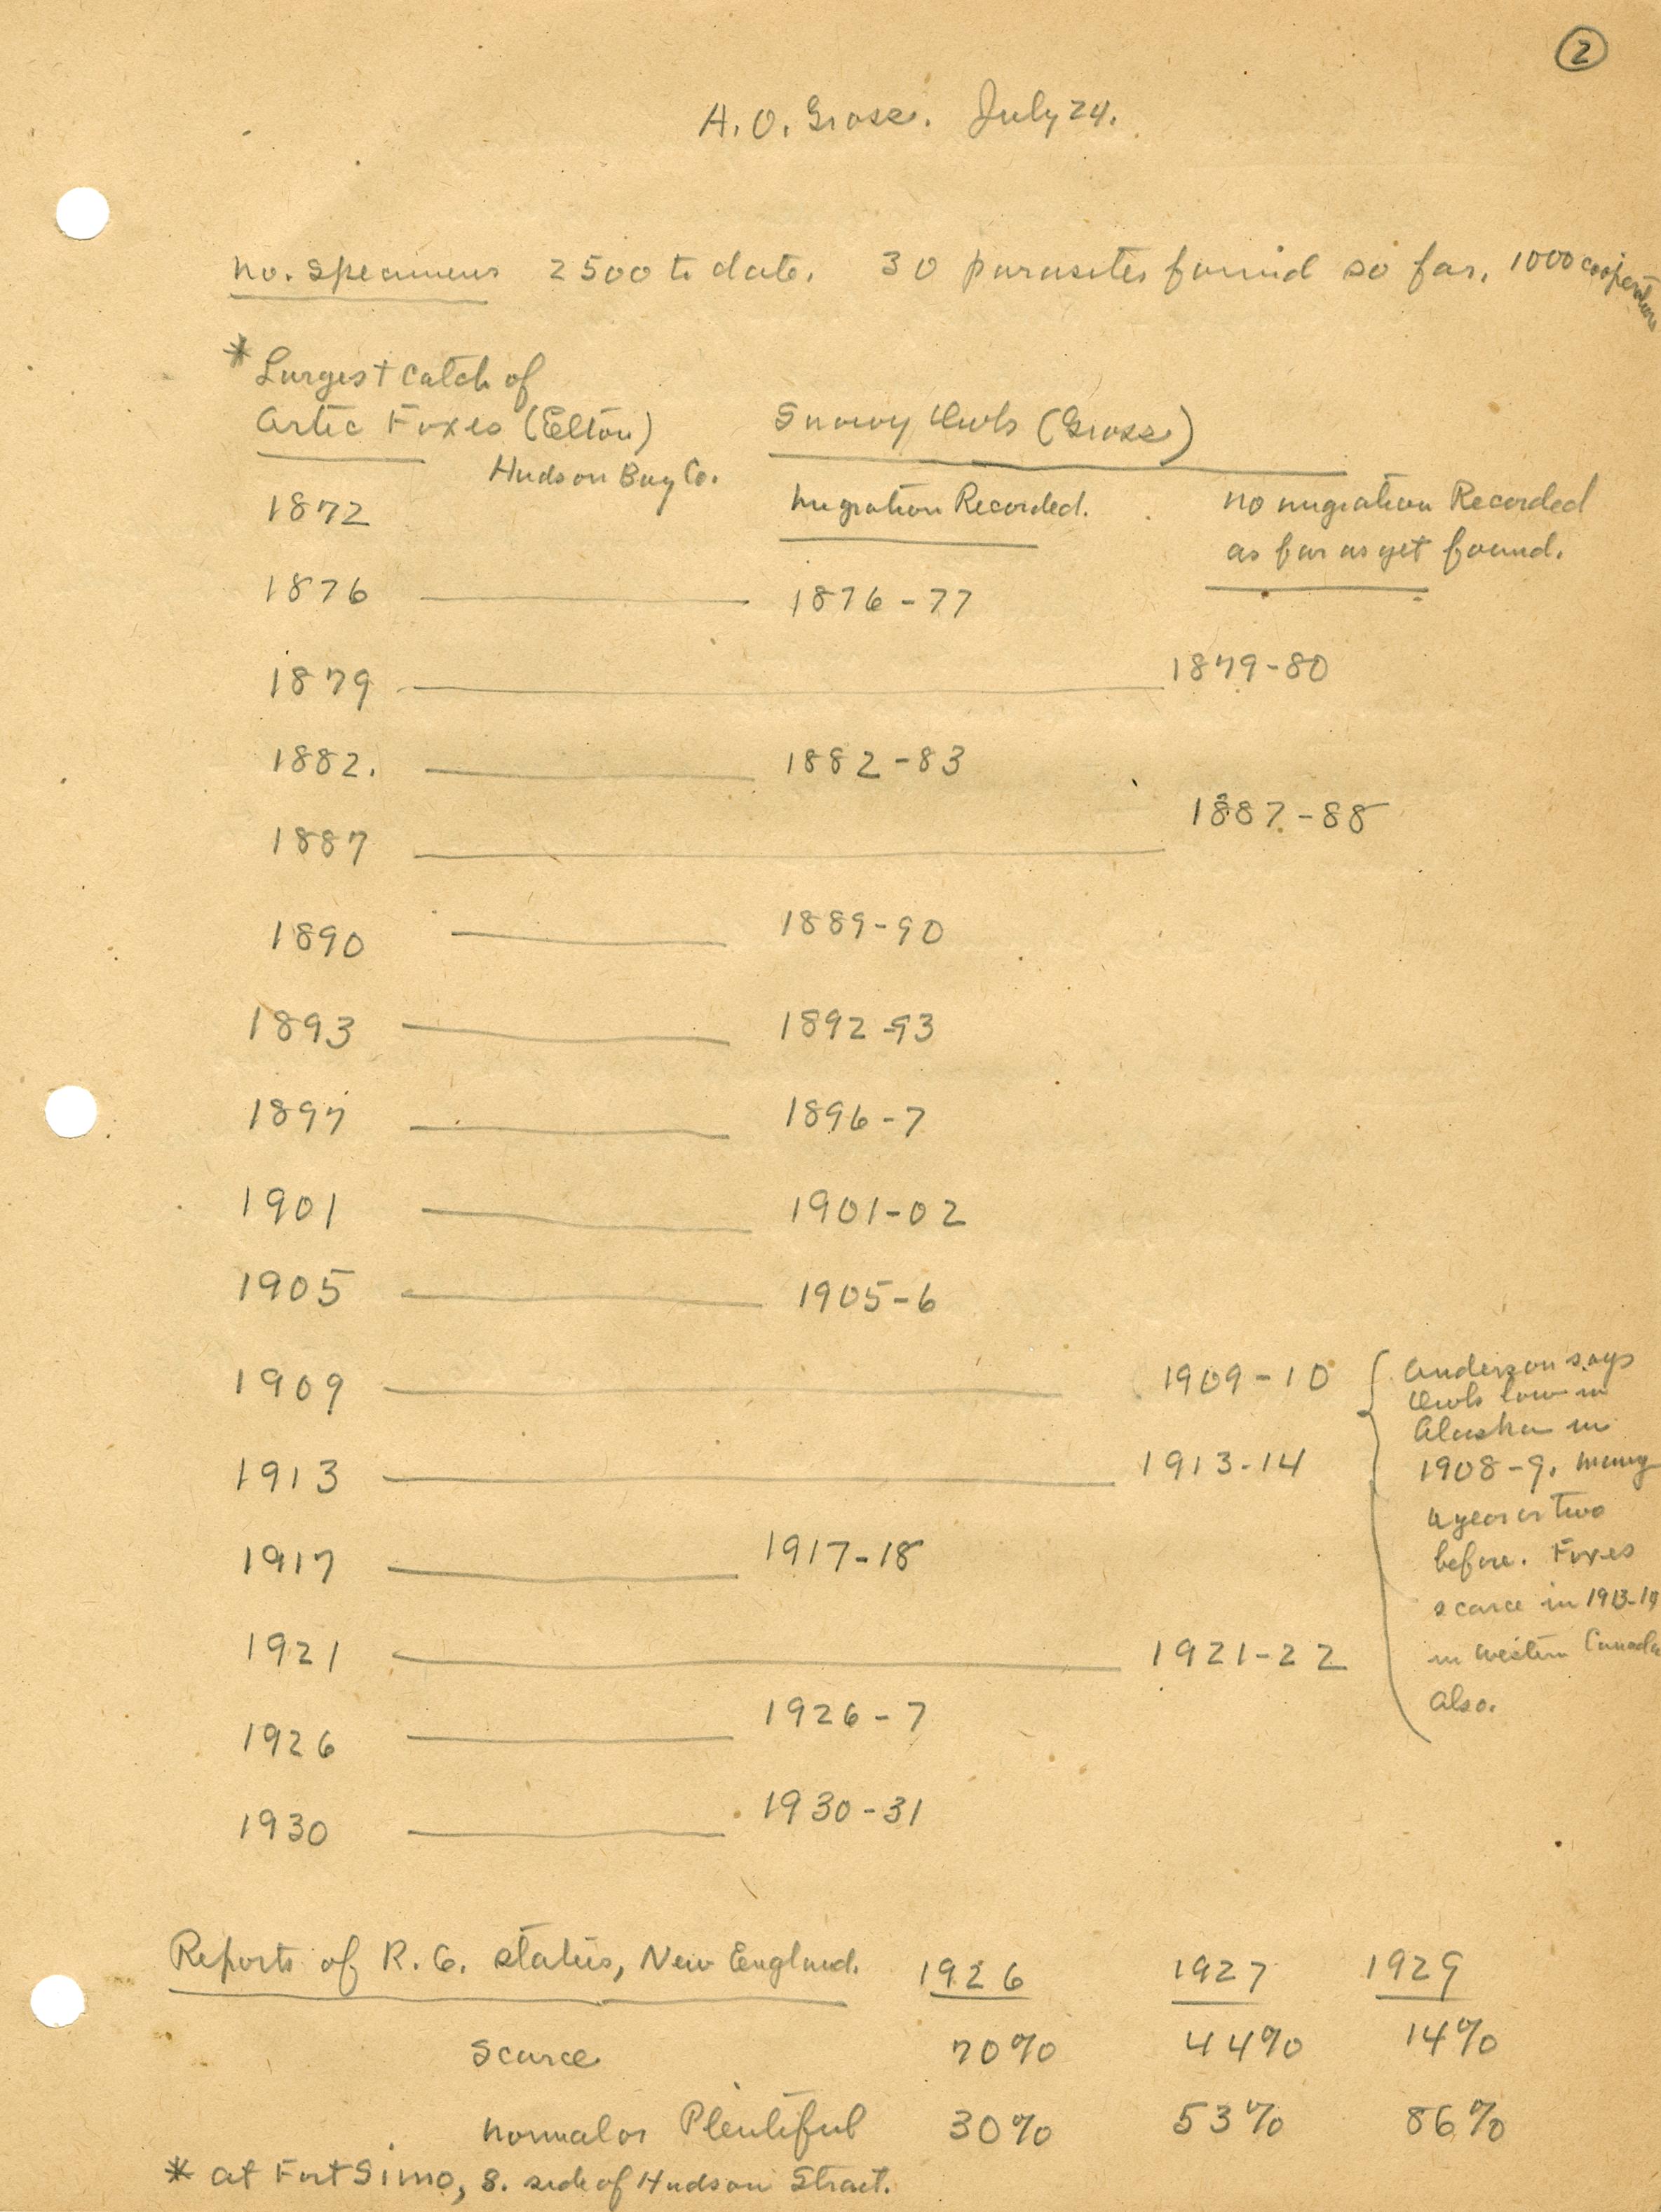 2
A. O. Gross. July 24.
No. Specimens 2500 to date. 30 parasites found so far. 1000 cooperators
* Largest catch of
Artic Foxes (Elton) Snowy Owls (Gross)
Hudson Bay Co.
1872 Migration Recorded. No migration Recorded
as far as yet found.
1876 1876-77
1879 1879-80
1882. 1882-83
1887 1887-88
1890 1889-90
1893 1892-93
1897 1896-7
1901 1901-02
1905 1905-6
1909 1909-10
1913 1913-14
1917 1917-18
1921 1921-22
1926 1926-7
1930 1930-31
Anderson says
Owls low in
Alaska in
1908-9. Many
a year or two
before. Foxes
scarce in 1913-14
in western Canada
also.
Reports of R. G. status, New England. 1926 1927 1929
Scarce 70% 44% 14%
Normal or Plentiful 30% 53% 86%
* at Fort Simo, S. side of Hudson Strait.